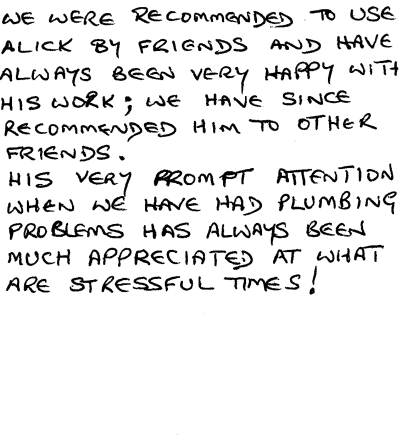 WE WERE RECOMMENDED TO USE
ALICK BY FRIENDS AND HAVE
ALWAYS BEEN VERY HAPPY WITH
HIS WORK; WE HAVE SINCE
RECOMMENDED HIM TO OTHER
FRIENDS.
HIS VERY PROMPT ATTENTION
WHEN WE HAVE HAD PLUMBING
PROBLEMS HAS ALWAYS BEEN
MUCH APPRECIATED AT WHAT
ARE STRESSFUL TIMES!